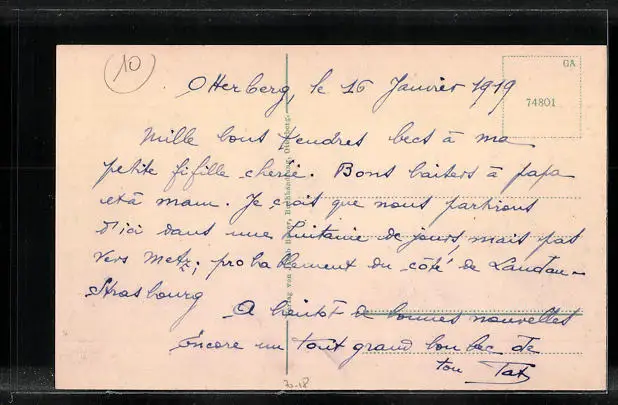 10
Otterberg, le 16 Janvier 1919
GA
74801
Mille bons tendres becs à ma
petite fifille cherie. Bons baisers à papa
et à mam. Je crois que nous partirons
d'ici dans une huitaine de jours, mais pas
vers Metz; probablement du côté de Landau-
Strasbourg
A bientôt de bonnes nouvelles
Encore un tout grand bon bec de
ton Tat
Verlag von Buchhandlung, Otterberg.